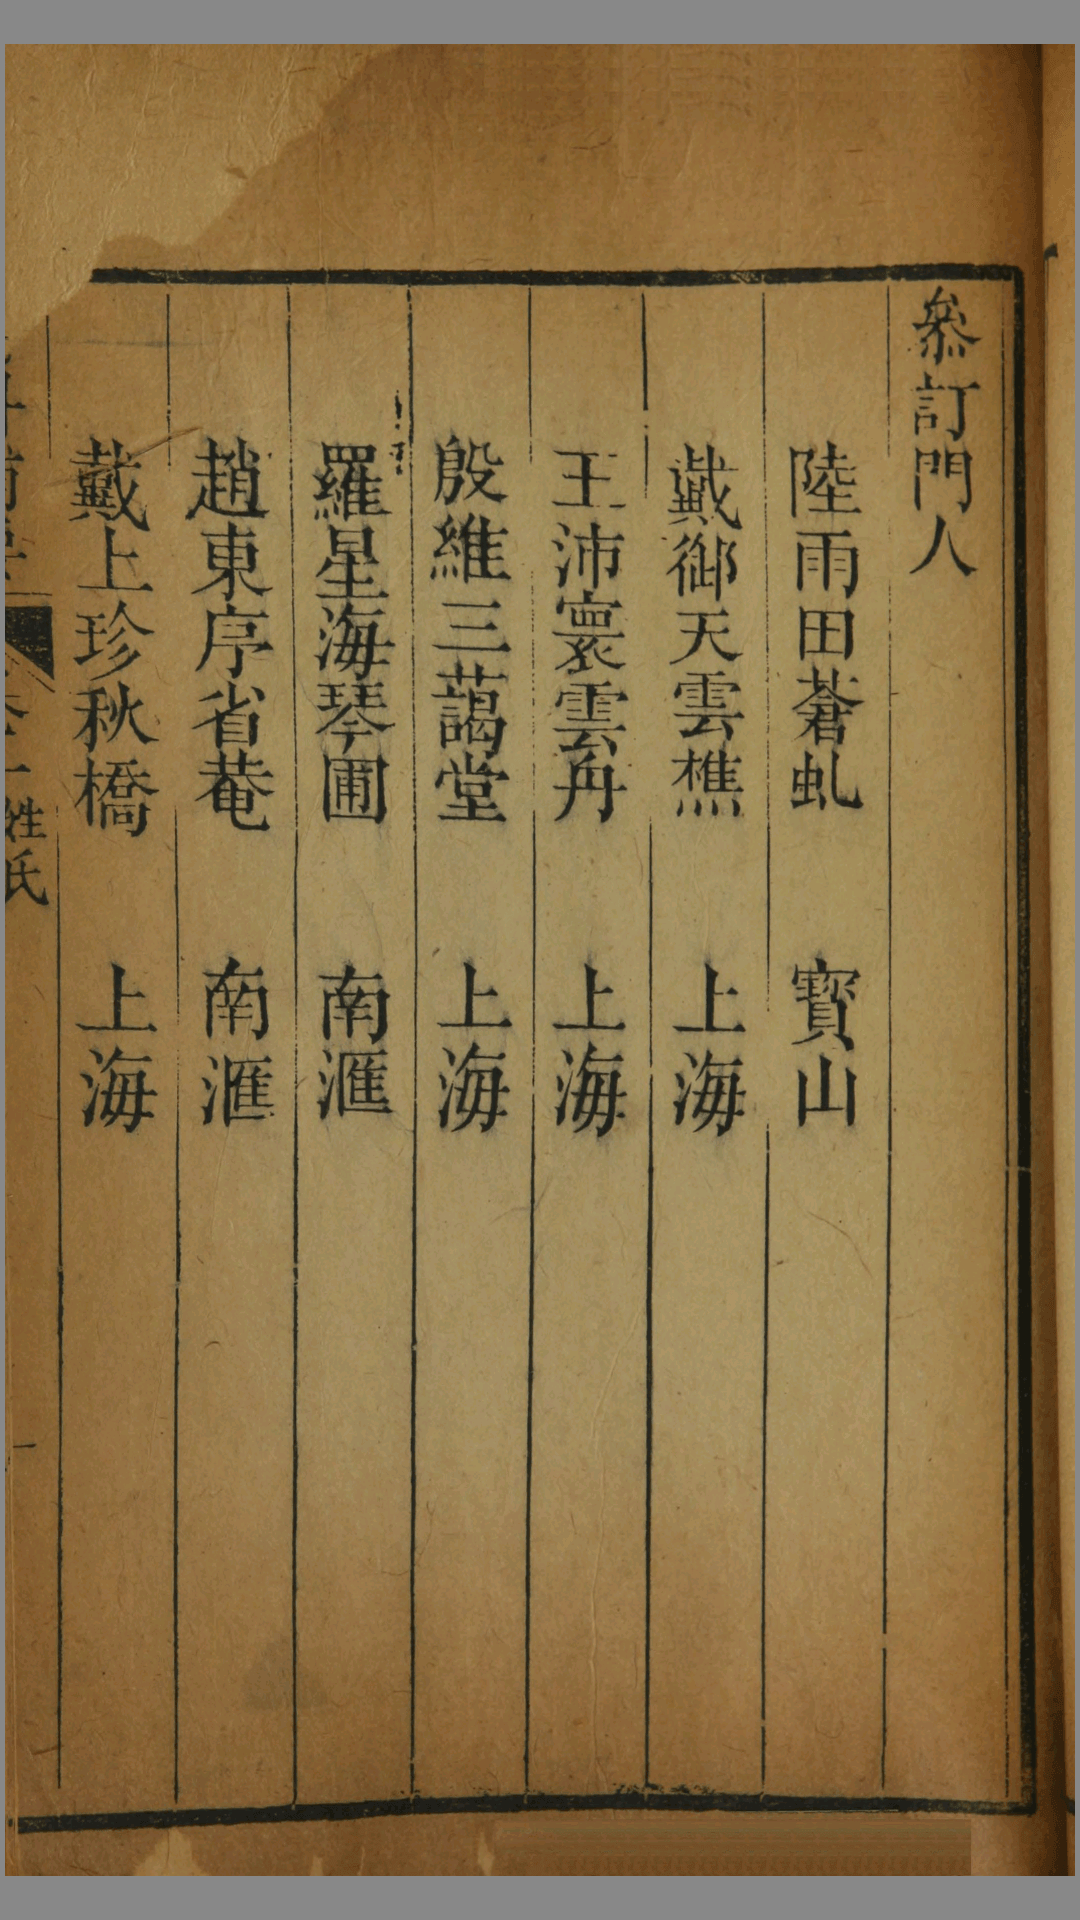 叅訂門人
陸雨田蒼虬 寶山
戴御天雲樵 上海
王沛寰雲舟 上海
殷維三藹堂 上海
羅星海琴圃 南滙
趙東序省菴 南滙
戴上珍秋橋 上海
姓氏